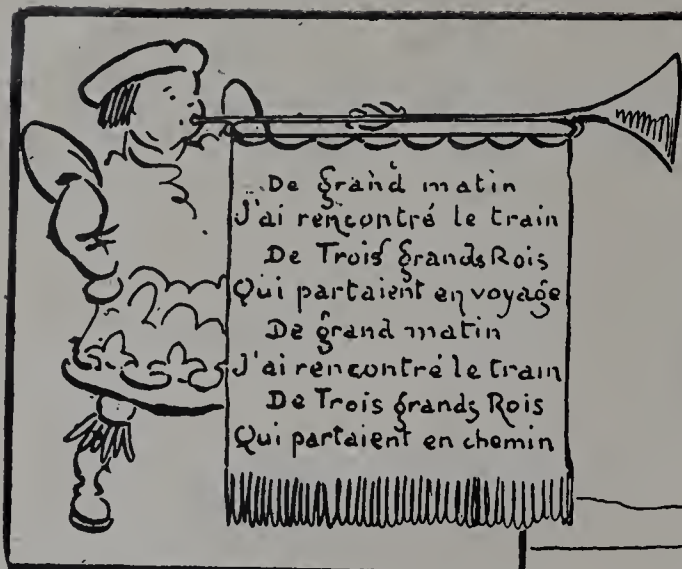 De grand matin
J'ai rencontré le train
De Trois grands Rois
Qui partaient en voyage
De grand matin
J'ai rencontré le train
De Trois grands Rois
Qui partaient en chemin